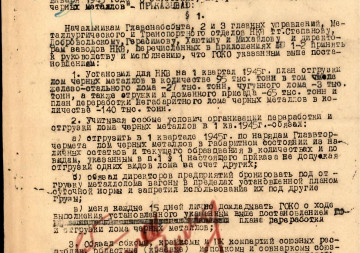 черных металлов - ПРИКАЗЫВАЮ:
§ 1.
Начальникам Главснабсбыта, 2 и 3 главных управлений, Ме-
таллургического и Транспортного отделов НКВ тт. Степанову,
Добровольскому, Герасимову, и Михайлову и дирек-
торам заводов НКВ, перечисленных в приложениях №№ 1-2 принять
к руководству и исполнению, что ГОКО указанным выше поста-
новлением:
1. Установил для НКВ на 1 квартал 1945г. план отгрузки
лома черных металлов в количестве 95 тыс. тонн в том числе
железо-стального лома -27 тыс. тонн, чугунного лома -3 тыс.
тонн, а также стружки и доменного присада -65 тыс. тонн и
план переработки негабаритного лома черных металлов в коли-
честве -140 тыс. тонн.
2. Учитывая особые условия организации переработки и
отгрузки лома черных металлов в 1 кв. 1945г. -обязал:
а) отгрузить в 1 квартале 1945г. по нарядам Главвтор-
чермета лома черных металлов в габаритном состоянии из на-
личных остатков и текущего образования в количествах и по
видам, указанным в п.1 настоящего приказа не допуская
отгрузки одних видов лома за счет других;
б) обязал директоров предприятий бронировать под от-
грузку металлолома вагоны в пределах установленной планом
суточной нормы и запретил использование их под другие
грузы;
в) меня каждые 15 дней лично докладывать ГОКО о ходе
выполнения установленного указанным выше постановлением
плана переработки
и отгрузки лома черных металлов;
3. Обязал обкомы, крайкомы и ЦК компартий союзных рес-